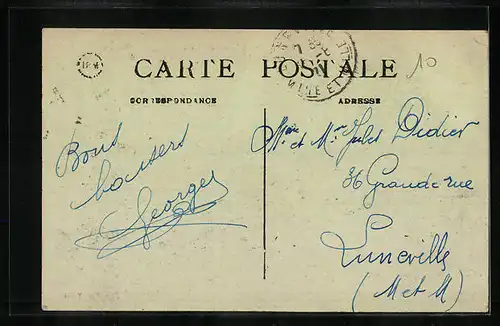 10
CARTE POSTALE
CORRESPONDANCE
ADRESSE
Bons
baisers
Georges
Mme et Mr Jules Didier
36 Grande rue
Luneville
(M et M)